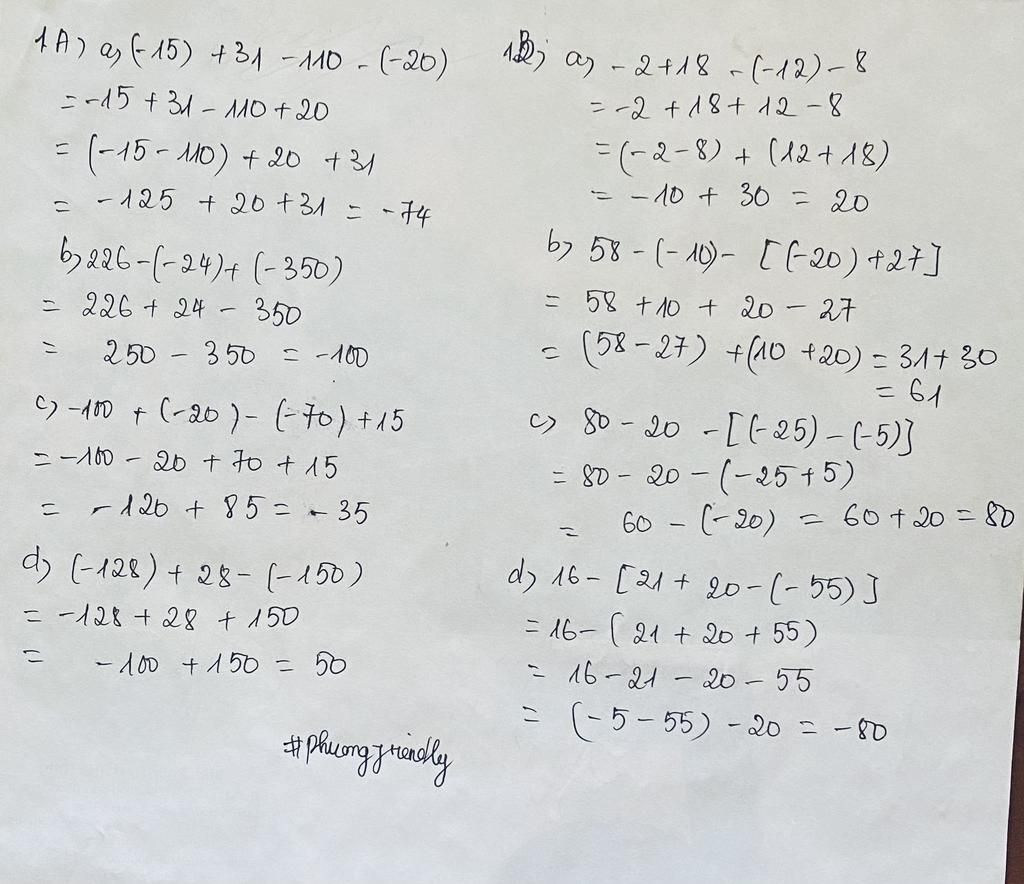 1A) a, (-15) + 31 - 110 - (-20)
= -15 + 31 - 110 + 20
= (-15 - 110) + 20 + 31
= -125 + 20 + 31 = -74
b, 226 - (-24) + (-350)
= 226 + 24 - 350
= 250 - 350 = -100
c, -100 + (-20) - (-70) + 15
= -100 - 20 + 70 + 15
= -120 + 85 = -35
d, (-128) + 28 - (-150)
= -128 + 28 + 150
= -100 + 150 = 50
#phuongfriendly
1B, a, -2 + 18 - (-12) - 8
= -2 + 18 + 12 - 8
= (-2 - 8) + (12 + 18)
= -10 + 30 = 20
b, 58 - (-10) - [(-20) + 27]
= 58 + 10 + 20 - 27
= (58 - 27) + (10 + 20) = 31 + 30
= 61
c, 80 - 20 - [(-25) - (-5)]
= 80 - 20 - (-25 + 5)
= 60 - (-20) = 60 + 20 = 80
d, 16 - [21 + 20 - (-55)]
= 16 - (21 + 20 + 55)
= 16 - 21 - 20 - 55
= (-5 - 55) - 20 = -80